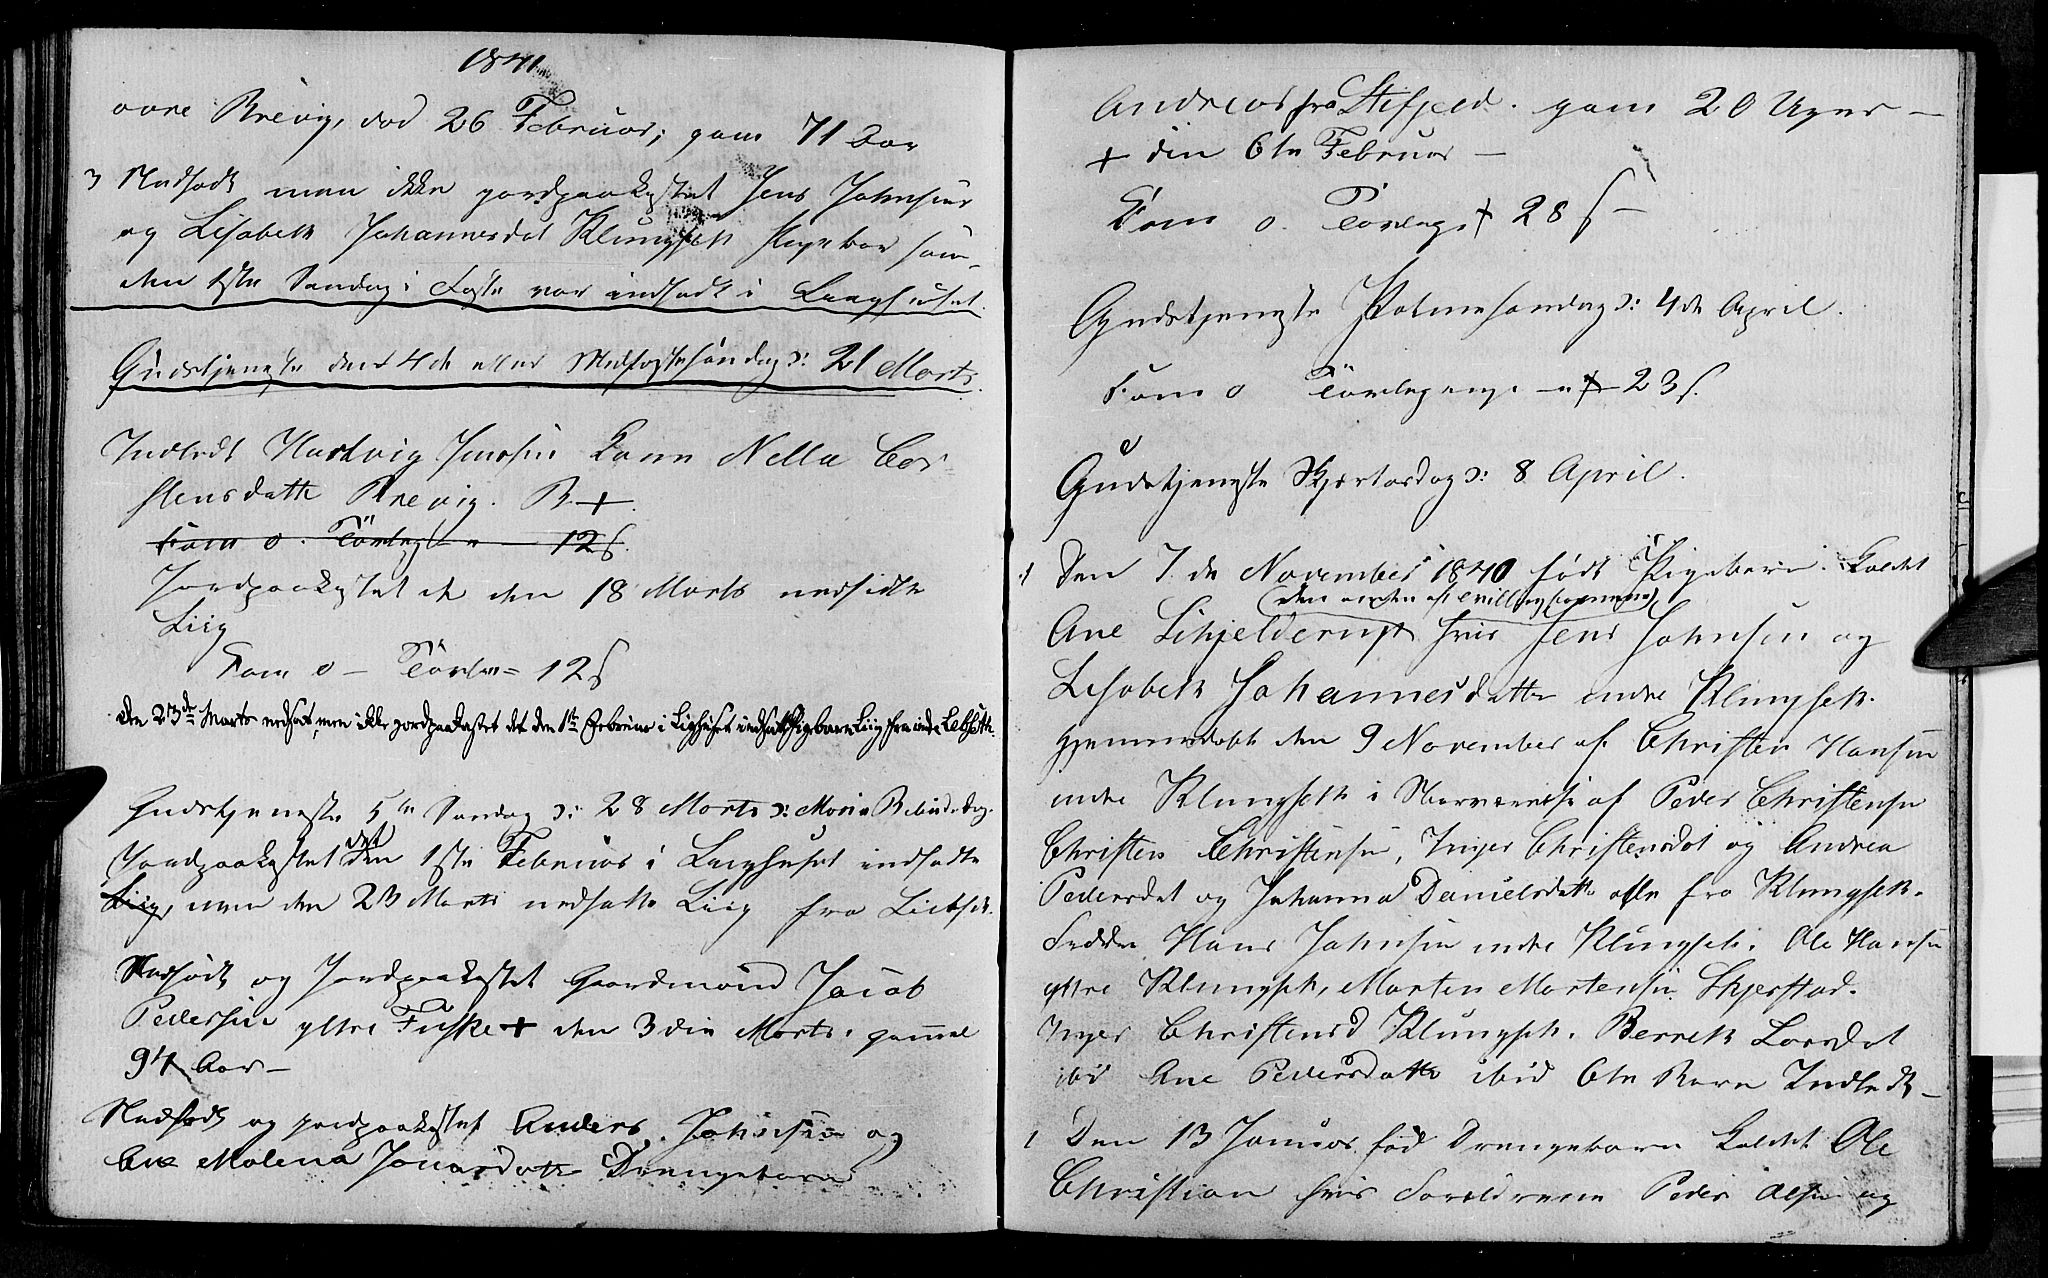 1841
øvre Brevig, død 26 Februar; gam 71 Aar
Nedsadt men ikke jordpaakastet Jens Johnsens
og Lisabeth Johannesdat Klungseth Pigebar som
den 1ste Søndag i Faste var indsadt i Liighuset.
Gudstjeneste den 4de eller Midfastesøndag ɔ: 21 Marts.
Indledt Hartvig Jensens Kone Nella Car-
stensdatter Brevig. B. +.
Fam 0. Tavlep 12 ß.
Jordpaakastet et den 18 Marts nedsadte
Liig
Fam 0 – Tavlen = 12 ß
den 23de Marts nedsat, men ikke jordpaakastet det den 1ste Februar i Liighuset indsatte Pigebarn Liig fra indre Lebseth.
Gudstjeneste 5te Søndag ɔ: 28 Marts ɔ: Mariæ Bebud. Dag.
Jordpaakastet det den 1ste Februar i Liighuset indsadte
Liig, men den 23 Marts nedsatte Liig fra Liebset.
Nedsadt og Jordpaakastet Gaardmand Jacob
Pedersen yttre Fuske + den 3die Marts. gammel
94 Aar –
Nedsadt og jordpaakastet Anders Johnsen og
Ane Malena Jonasdatter Drengebarn
Andreas fra Stifjeld. gam 20 Uger –
+ den 6te Februar –
Fam 0. Tavlep. 28 ß –
Gudstjeneste Palmesøndag ɔ: 4de April.
Fam 0 Tavlepenge – 23 ß.
Gudstjeneste Skjærtorsdag ɔ: 8 April.
Den 7de November 1840 født Pigebarn. Kaldet
(den anden af Tvillingsømmene)
Ane Schjelderup hvis Jens Johnsen og
Lisabeth Johannesdatter indre Klungseth.
hjemmedøbt den 9 November af Christen Hansen
indre Klungseth i Nærværelse af Peder Christensen
Christen Christensen, Inger Christensdat og Andrea
Pedersdat og Johanna Danielsdatt alle fra Klungseth.
Faddere Hans Johnsen indre Klungseth. Ole Hansen
yttre Klungseth, Morten Mortensen Skjerstad.
Inger Christensd Klungseth. Bereth Larsdat
ibid Ane Pedersdatter ibid 6te Barn Indledt –
1 Den 13 Januar født Drengebarn Kaldet Ole
Christian hvis Forældrene Peder Olsen og